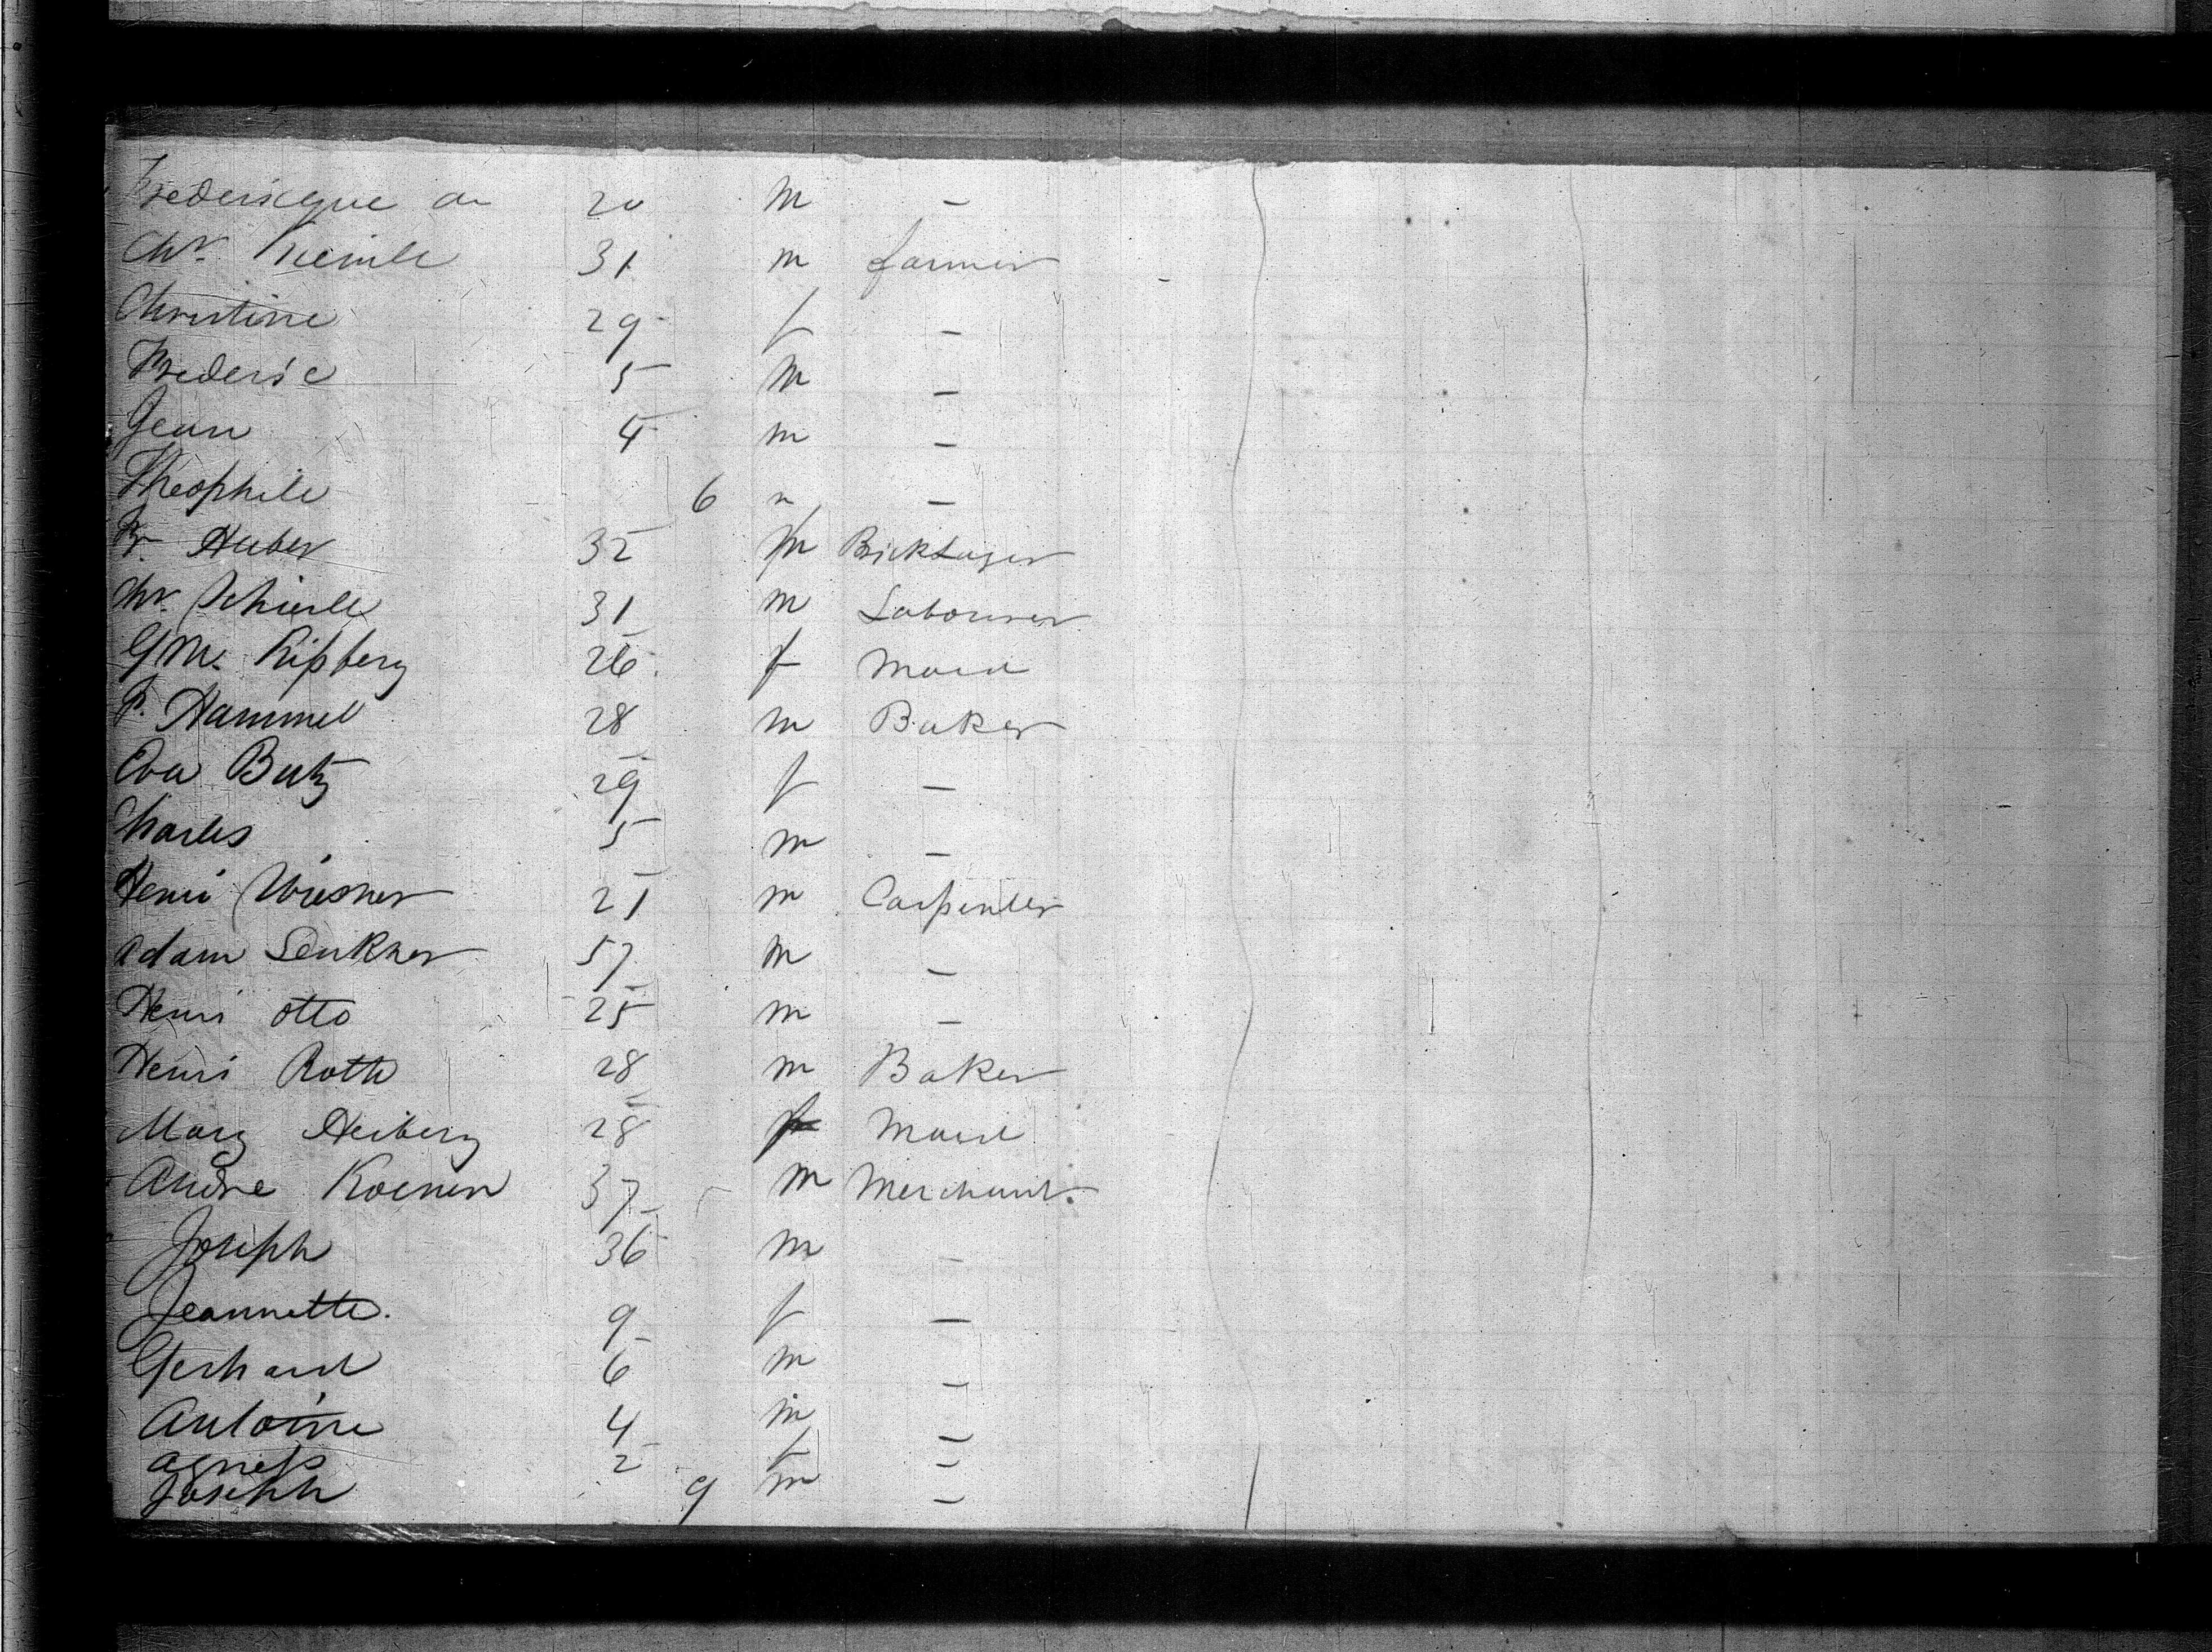 Fredericque du 20 m –
Chr. Kienle 31 m farmer
Christine 29 f –
Frederic 5 m –
Jean 4 m –
Theophile 6 m –
Fr. Huber 32 m Bricklayer
Chr. Schierle 31 m Labourer
G M. Rißberg 26 f Maid
F. Hammel 28 m Baker
Eva Butz 29 f –
Charles 5 m –
Henri Wiesner 21 m Carpenter
Adam Lenkner 57 m –
Henri Otto 25 m –
Henri Roth 28 m Baker
Mary Heiberg 28 f Maid
Andre Koenen 37 m Merchant.
Joseph 36 m –
Jeannette. 9 f –
Gerhard 6 m –
Antoine 4 m –
Agneß 2 f –
Joseph 9 m –